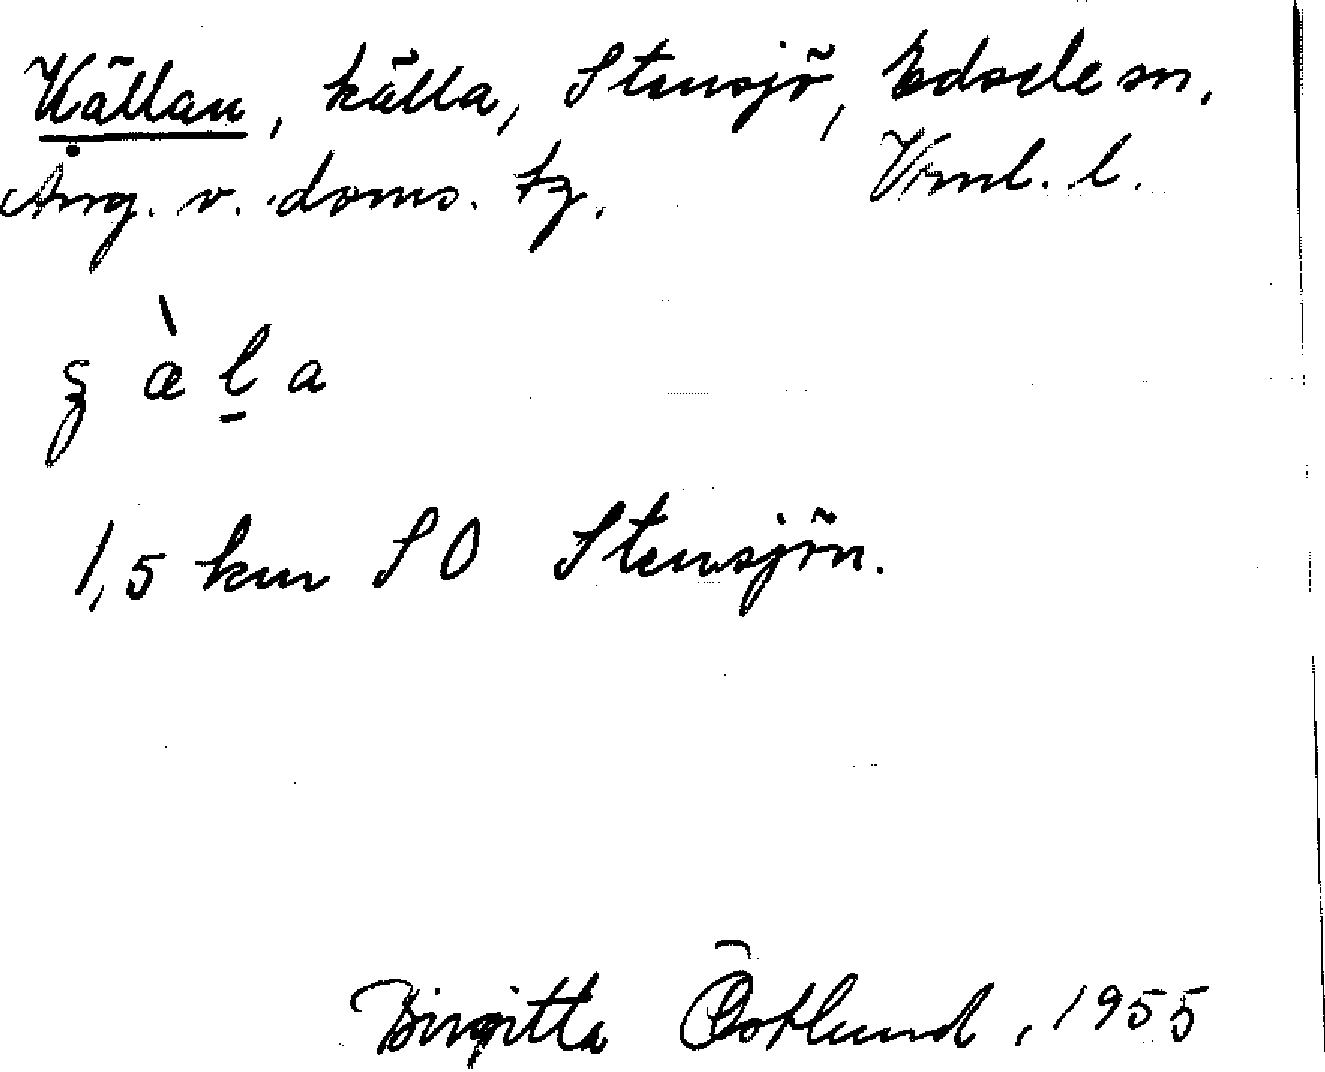 Källan, källa, Stensjö, Edsele sn,
Ång. v. doms. tg. Vrnl. l.
ʒ æ̀ l̲ a
1,5 km SO Stensjön.
Birgitta Östlund, 1955